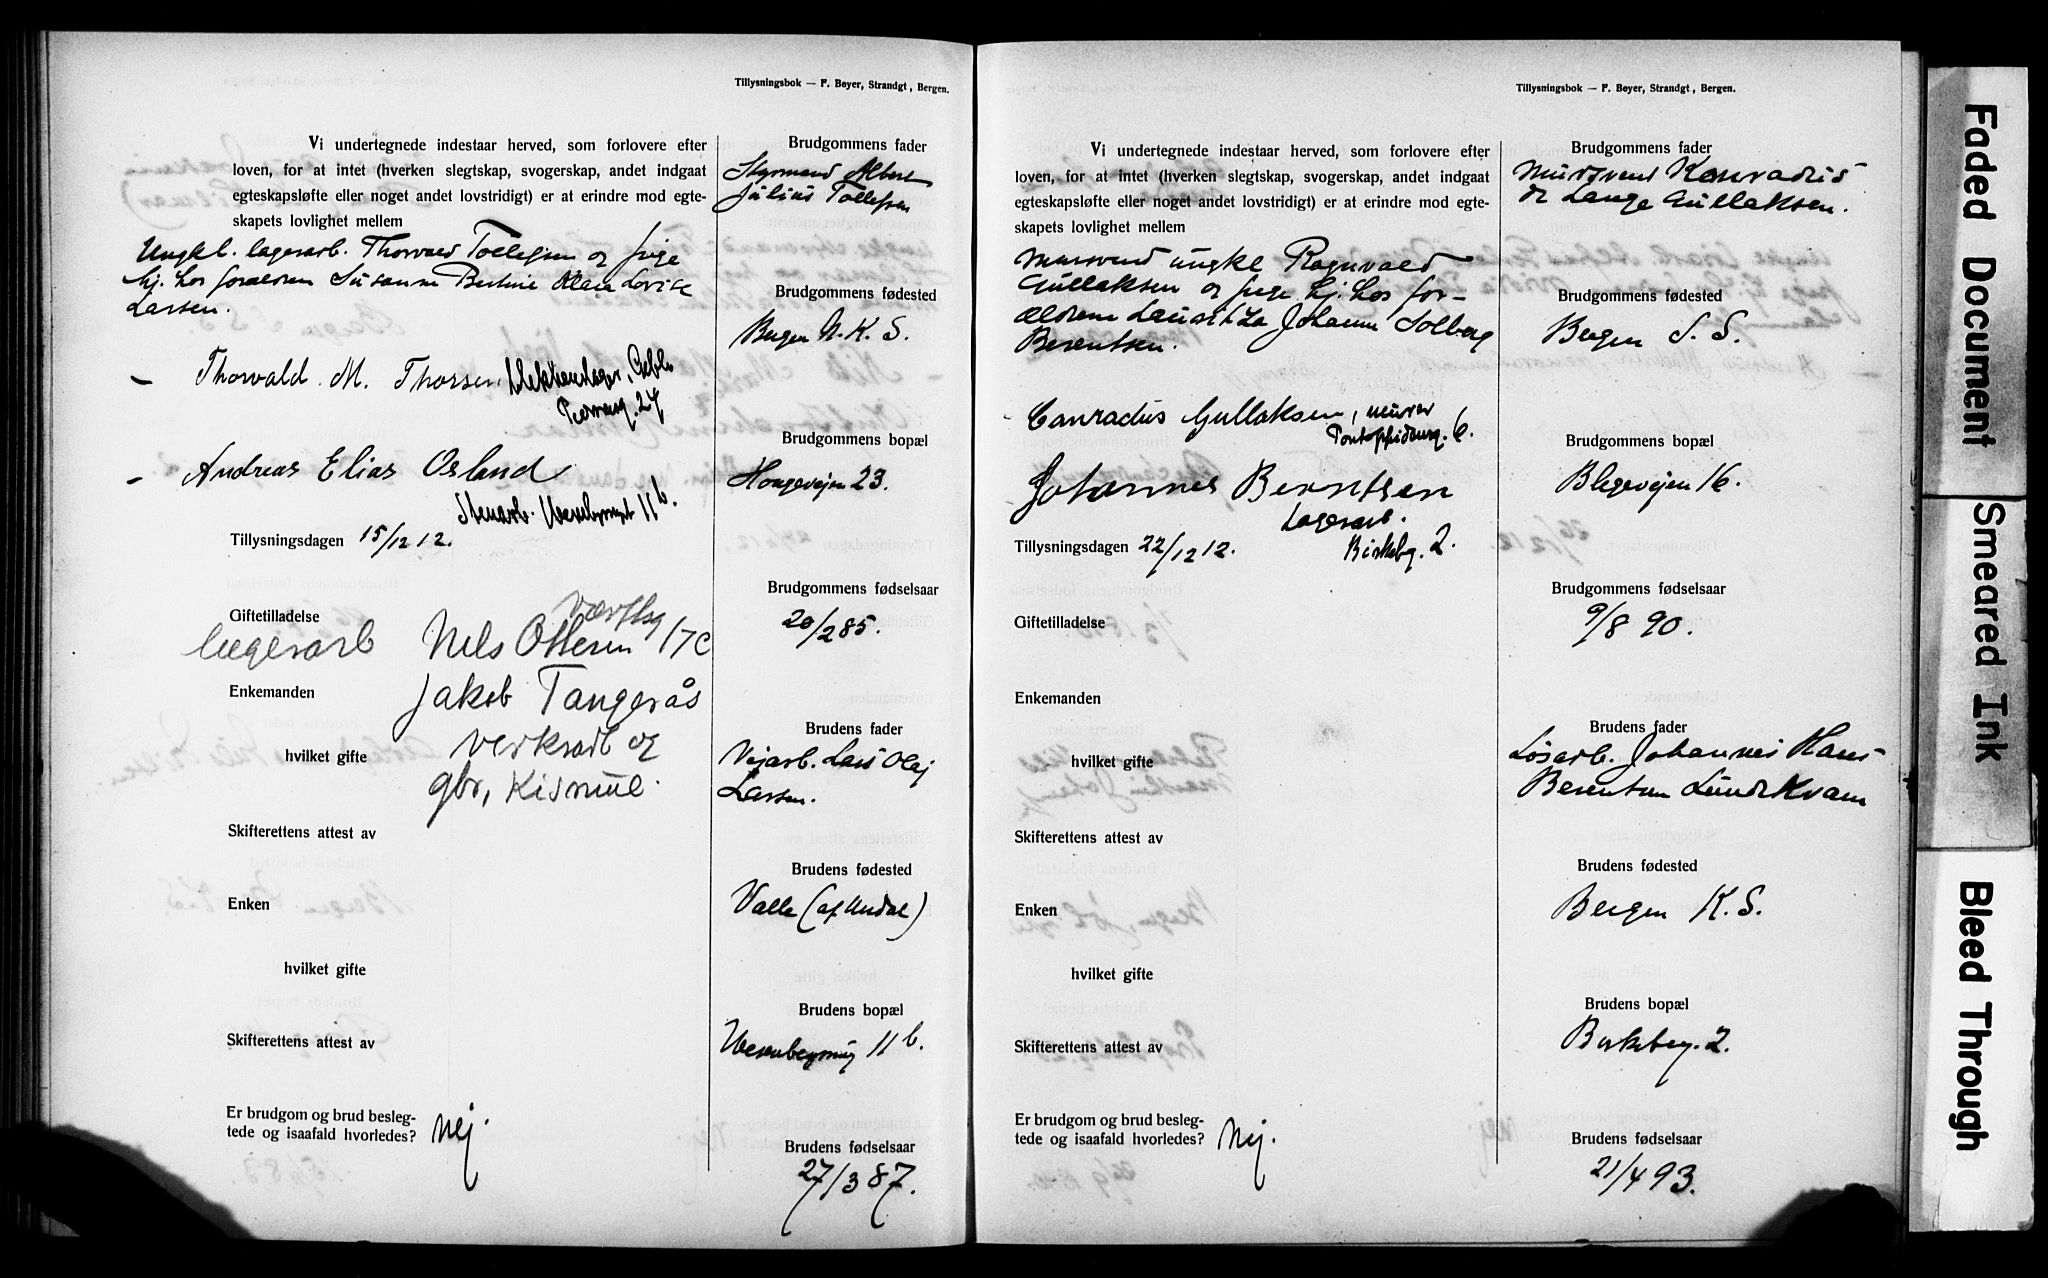 Tillysningsbok — F. Beyer, Strandgt, Bergen.
Vi undertegnede indestaar herved, som forlovere efter
loven, for at intet (hverken slegtskap, svogerskap, andet indgaat
egteskapsløfte eller noget andet lovstridigt) er at erindre mod egte-
skapets lovlighet mellem
Ungkl. lagerarb. Thorvald Tollefsen og pige
hj. hos forældrene Susanne Bertine Lovise
Larsen.
— Thorvald M. Thorsen
27
- Andreas Elias Osland
Stenarb. 11 b.
Tillysningsdagen 15/12 12.
Giftetilladelse
lagerarb Nels Ottesen 17c
Enkemanden
Jakob Tangerås
hvilket gifte
verksarb og
gbr, Kismul.
Skifterettens attest av
Enken
hvilket gifte
Skifterettens attest av
Er brudgom og brud besleg-
tede og isaafald hvorledes? Nej.
Brudgommens fader
Styrmand Albert
Julius Tollefsen
Brudgommens fødested
Bergen N. K. S.
Brudgommens bopæl
Haugevejen 23.
Brudgommens fødselsaar
20/2 85.
Brudens fader
Vejarb. Lars Olaj
Larsen.
Brudens fødested
Valle (
Brudens bopæl
11 b.
Brudens fødselsaar
27/3 87.
Tillysningsbok — F. Beyer, Strandgt, Bergen.
Vi undertegnede indestaar herved, som forlovere efter
loven, for at intet (hverken slegtskap, svogerskap, andet indgaat
egteskapsløfte eller noget andet lovstridigt) er at erindre mod egte-
skapets lovlighet mellem
Mursvend ungkl Ragnvald
Gullaksen og pige hj. hos for-
ældrene Johanne Solberg
Berentsen.
Conradus Gullaksen, murer
6.
Johannes Berntsen
Lagerarb.
Birkebg. 2.
Tillysningsdagen 22/12 12.
Giftetilladelse
Enkemanden
hvilket gifte
Skifterettens attest av
Enken
hvilket gifte
Skifterettens attest av
Er brudgom og brud besleg-
tede og isaafald hvorledes? Nej.
Brudgommens fader
Mursvend Konradus
de Lange Gullaksen.
Brudgommens fødested
Bergen S. S.
Brudgommens bopæl
Blegevejen 16.
Brudgommens fødselsaar
9/8 90.
Brudens fader
Løsarb. Johannes Hans
Berentsen Lundekvam
Brudens fødested
Bergen K. S.
Brudens bopæl
Birkebeg. 2.
Brudens fødselsaar
21/4 93.
Faded Document
Smeared Ink
Bleed Through